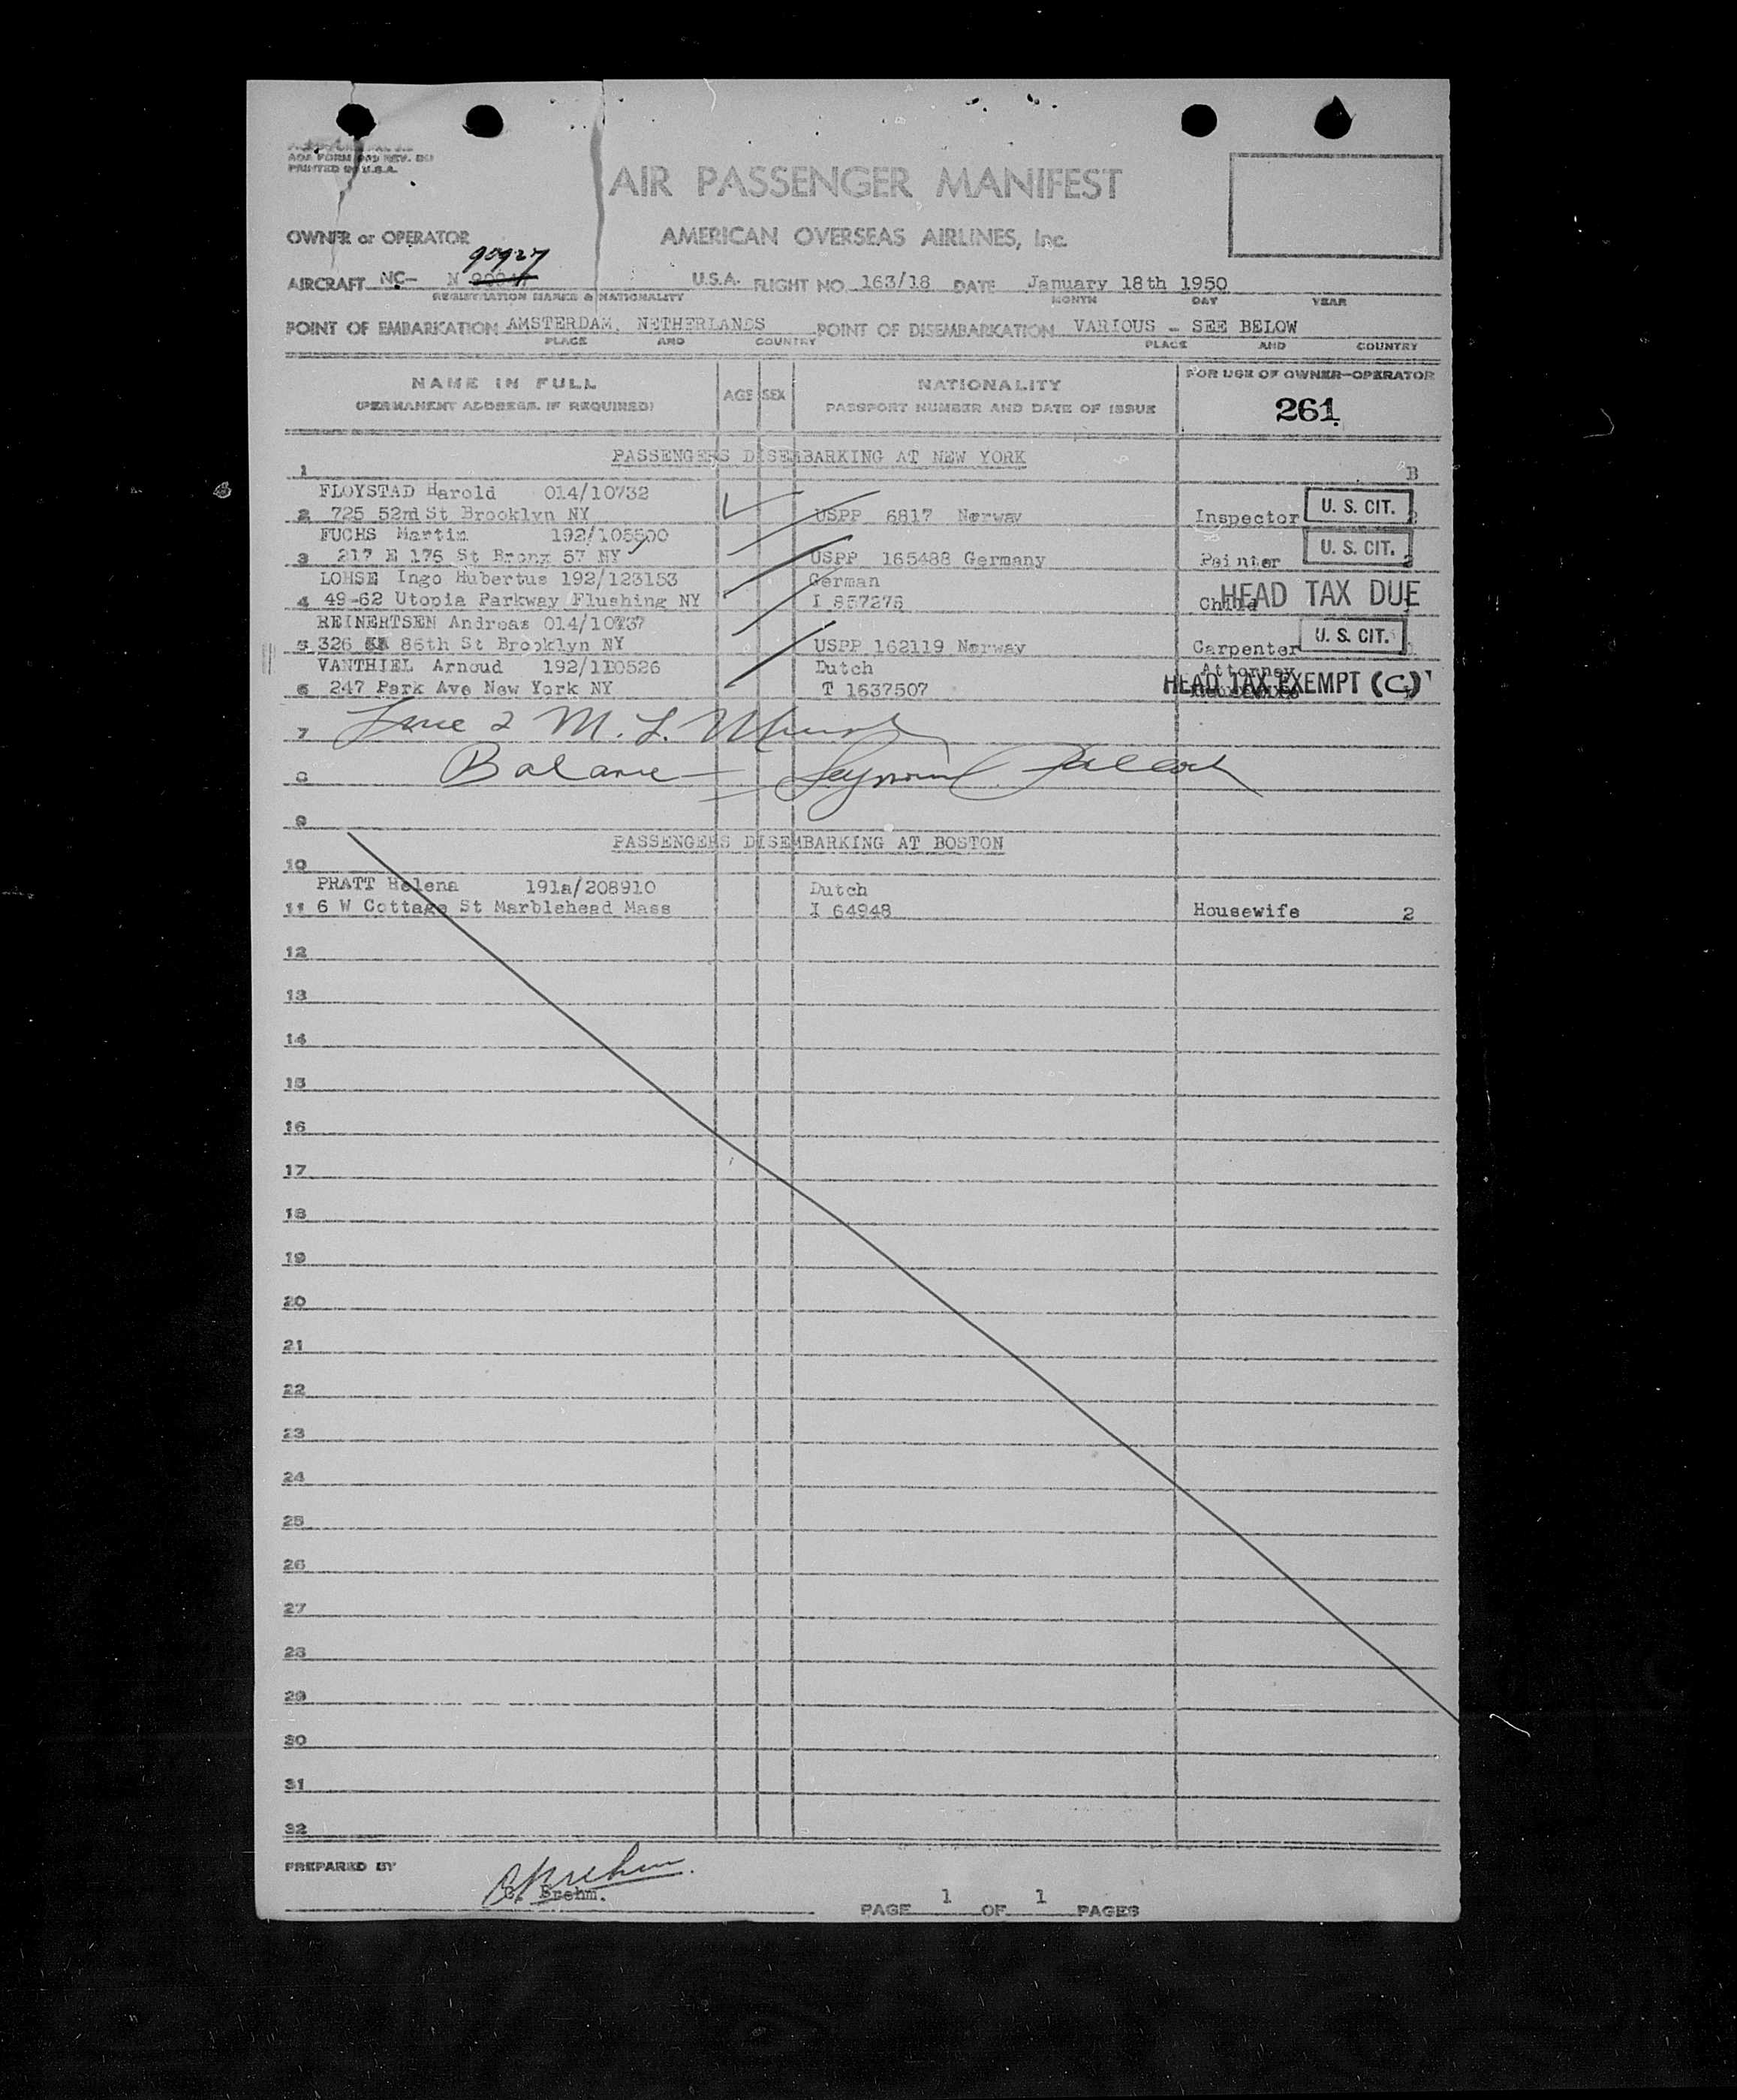 AOA FORM REV.
PRINTED IN U.S.A.
AIR PASSENGER MANIFEST
OWNER or OPERATOR AMERICAN OVERSEAS AIRLINES, Inc.
90927
AIRCRAFT NC- N U.S.A. FLIGHT NO. 163/18 DATE January 18th 1950
REGISTRATION MARKS & NATIONALITY MONTH DAY YEAR
POINT OF EMBARKATION AMSTERDAM, NETHERLANDS POINT OF DISEMBARKATION VARIOUS - SEE BELOW
PLACE AND COUNTRY PLACE AND COUNTRY
NAME IN FULL AGE SEX NATIONALITY FOR USE OF OWNER-OPERATOR
(PERMANENT ADDRESS, IF REQUIRED) PASSPORT NUMBER AND DATE OF ISSUE 261
PASSENGERS DISEMBARKING AT NEW YORK
1 B
FLOYSTAD Harold 014/10732
2 725 52nd St Brooklyn NY USPP 6817 Norway Inspector U. S. CIT.
FUCHS Martin 192/105500
3 217 E 176 St Bronx 57 NY USPP 165488 Germany Painter U. S. CIT. 2
LOHSE Ingo Hubertus 192/123153 German
4 49-62 Utopia Parkway Flushing NY I 857275 Child HEAD TAX DUE
REINERTSEN Andreas 014/10737
5 326 86th St Brooklyn NY USPP 162119 Norway Carpenter U. S. CIT. 1
VANTHIEL Arnoud 192/110526 Dutch Attorney
6 247 Park Ave New York NY T 1637507 HEAD TAX EXEMPT (C)
7 Line 2 M. L.
8 Balance - Seymour
9
PASSENGERS DISEMBARKING AT BOSTON
10
PRATT Helena 191a/208910 Dutch
11 6 W Cottage St Marblehead Mass I 64948 Housewife 2
12
13
14
15
16
17
18
19
20
21
22
23
24
25
26
27
28
29
30
31
32
PREPARED BY
Brehm.
PAGE 1 OF 1 PAGES